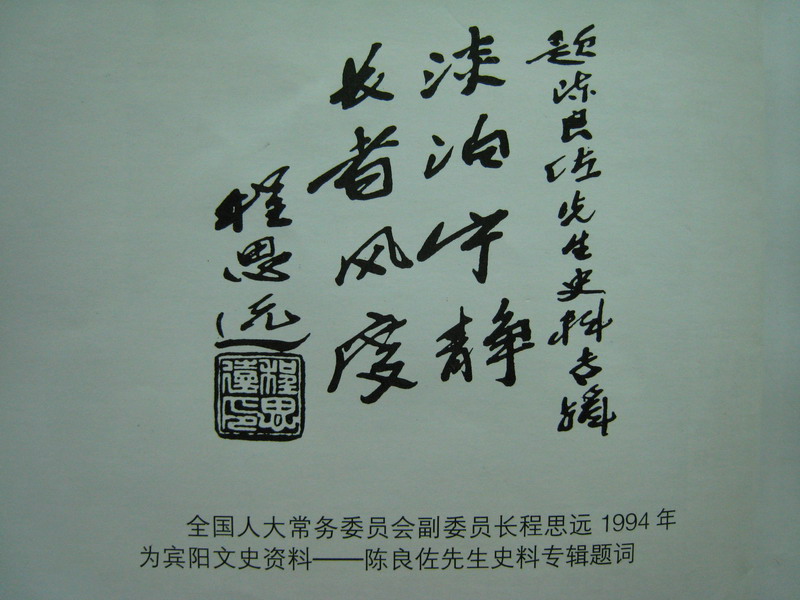 题陈良佐先生史料专辑
淡泊宁静
长者风度
程思远
程思远印
全国人大常务委员会副委员长程思远 1994 年
为宾阳文史资料——陈良佐先生史料专辑题词